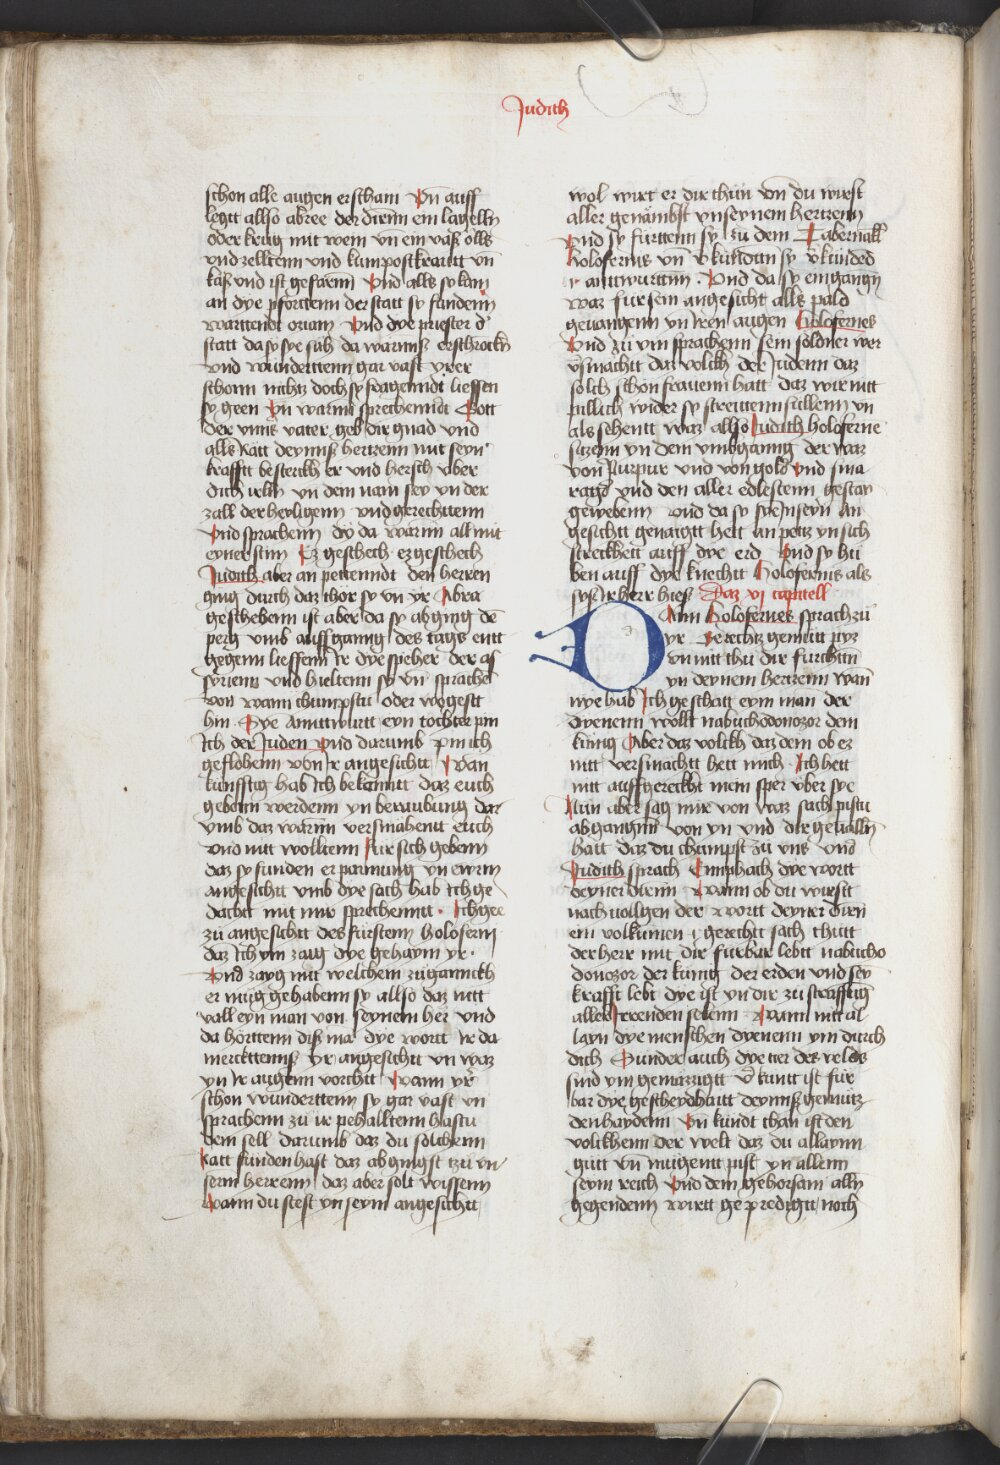 Judith
schon alle augen erscham Vn̄ auff
legtt allso abree der diernn ein lagelln
oder krug mit wein vn̄ ein vaß olls
vnd zelltenn vnd kumpostkrautt vn̄
kaß vnd ist gefarenn Vnd alls sy kam
an dye pforttenn der statt sy fundenn
warttendt oziam Vnd dye priester d'
statt da sy sye sah da warnn erschrockn
vnd wundertenn gar vast yrer
schonn nichtz doch sy fragenndt liessen
sy geen Vn̄ warnn sprechenndt Gott
der vnns vater geb dir gnad vnd
alls Ratt deynnß hertzenn mit seyn'
krafftt besterckh er vnd hersch vber
dich vn dem nam sey yn der
zall der heyligenn vnd gerechttenn
Vnd sprachenn dy da warnn all mit
eyner stim Ez geschech ez geschech
Judith aber an pettenndt den herren
ging durch daz thor sy vn yr Abra
geschehenn ist aber da sy abging dē
perg vmb auffganng des tags entt
gegenn lieffenn Ir dye speher der as
syrienn vnd hieltenn sy vn̄ sprachē
von wann chumpstu oder wo geest
hin Dye Anttwurtt eyn tochter pin
Ich der Juden Vnd darumb pin ich
geflohenn von Ir angesichtt Wan
kunfftig hab Ich bekanntt daz euch
gebenn werdenn yn beraubung dar
vmb daz warnn versmahentt euch
vnd nitt wolltenn fur sich gebenn
daz sy funden er parmung yn ewrm
angesichtt vmb dye sach hab Ich ge
dachtt mit mir sprechenntt Ich gee
zu angesichtt des furstenn Holoferni
daz Ich ym zaug dye gehaym yr
Vnd zayg mit welchem zuganncklh
er mug gehabenn sy allso daz nitt
vall eyn man von seynem her vnd
da horttenn diß mā dye wortt Ir da
mercktenns yr angesichtt vn waz
yn Ir augenn vorchtt Wann yr
schon wunderttenn sy gar vast vn̄
sprachenn zu ir pehalltenn hastu
dein sell darumb daz du sollchenn
Ratt funden hast daz ab gingst tzu vn
serm herrenn daz aber solt wissenn
Wann du stest yn seym angesichtt
wol wirt er dir thun vn̄ du wirst
aller genambst yn seynem hertzenn
Vnd sy furttenn sy zu dem Tabernakl
Holofernis vn̄
anttwurttnn Vnd da sy eingangn
waz fur sein angesicht alls pald
geuangenn yn Iren augen Holofernes
Vnd zu ym sprachenn sein soldner wer
vsmachtt daz volckh der Judenn daz
solich schon frauenn hatt daz wir nitt
pillich wider sy streittenn sullenn vn
als sehentt waz allso Judith Holoferne
sitzenn yn dem vmbganng der waz
von Purpur vnd von gold vnd sma
ragd vnd den aller edlestenn gestay
gewebenn vnd da sy yn seyn an
gesichtt genaigtt hett an pett yn sich
streckhett auff dye erd Vnd sy hu
ben auff dye knechtt Holofernis als
syß Ir herr hieß Daz xi capitell
Dann Holofernes sprach zu
yr gerechtz gemutt pyz
vn nitt thu dir furchtn
yn deynem hertzenn wan
nye hab Ich geschatt eym man der
dyenenn wollt nabuchodonozor dem
kunig Aber daz volckh daz dem ob ez
nitt versmachtt hett mich Ich hett
nitt auffgereckht mein sper vber sye
Nun aber sag mir von waz sach pistu
abgangnn von yn vnd dir geualln
hatt daz du chumpst zu vns Vnd
Judith sprach Emphach dye wortt
deyner diernn Wann ob du wirstt
nach vollgen der wortt deyner diern
ein volkumen gerechtt sach thutt
der herr mit dir furbar lebtt nabucho
donozor der kunig der erden vnd sey
krafft lebt dye ist yn dir zu straffung
aller Irrenden selenn Wann nitt al
layn dye menschen dyenenn ym durch
dich Sunder auch dye tier des velds
sind ym gemazzigtt v̄kuntt ist fur
bar dye gescheydhaitt deynnß gemutz
den haydenn Vn̄ kundt than ist den
volckhenn der welt daz du allaynn
gutt vn̄ mugentt pist yn allenn
seym reich Vnd dein gehorsam alln
gegendenn wirtt gepredigtt noch